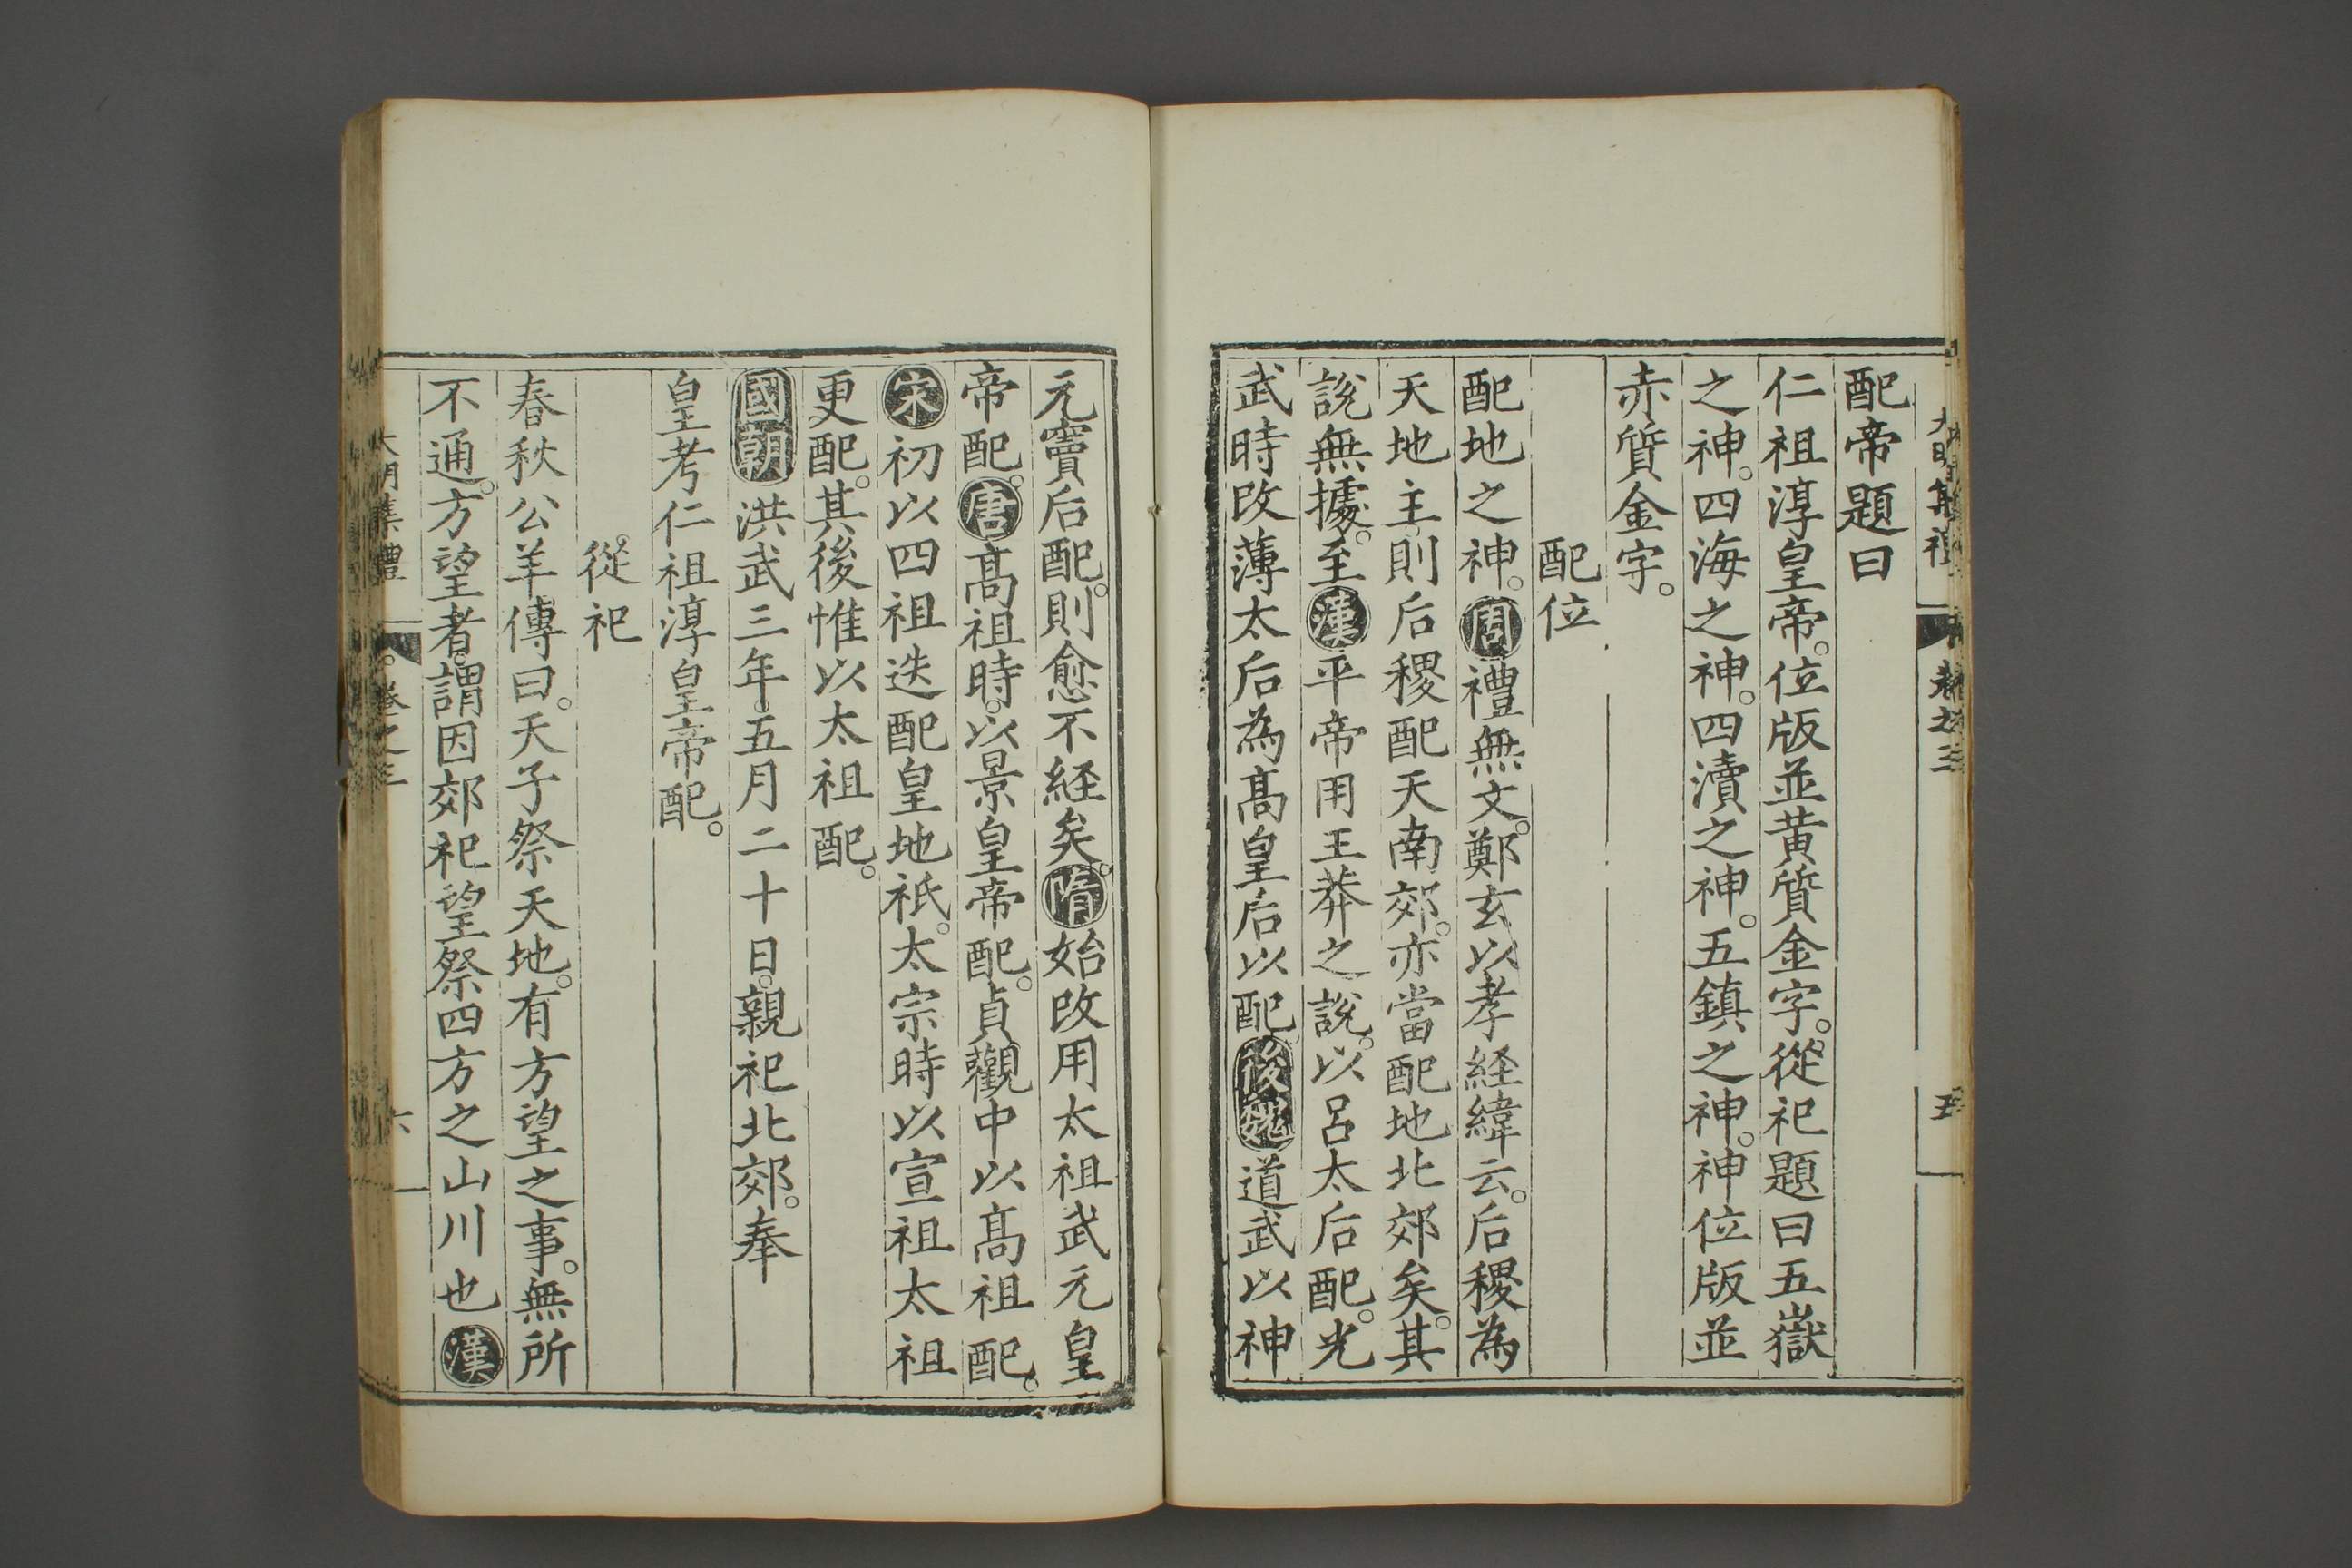 大明集禮 卷之三 五
配帝題曰
仁祖淳皇帝。位版並黄質金字。從祀題曰五嶽
之神。四海之神。四瀆之神。五鎮之神。神位版並
赤質金字。
配位
配地之神。周禮無文。鄭玄以孝経緯云。后稷為
天地主。則后稷配天南郊。亦當配地北郊矣。其
說無據。至漢平帝用王莽之說。以呂太后配。光
武時改薄太后為髙皇后以配。後魏道武以神
元竇后配。則愈不経矣。隋始改用太祖武元皇
帝配。唐髙祖時。以景皇帝配。貞觀中以髙祖配。
宋初以四祖迭配皇地祇。太宗時以宣祖太祖
更配。其後惟以太祖配。
國朝洪武三年。五月二十日。親祀北郊。奉
皇考仁祖淳皇帝配。
從祀
春秋公羊傳曰。天子祭天地。有方望之事。無所
不通。方望者。謂因郊祀望祭四方之山川也漢
大明集禮 卷之三 六